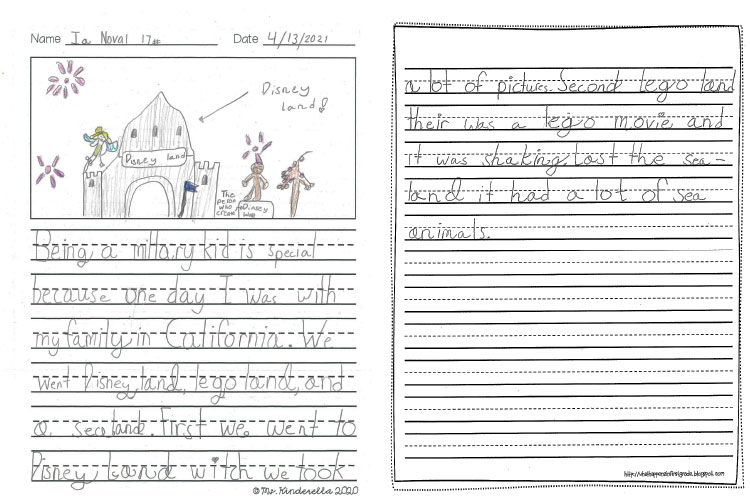 Name Ia Noval 17#
Date 4/13/2021
Disney
land!
Disney land
The
person
who
create
Disney
Wan
Being a millary kid is special
because one day I was with
my family in California. We
went Disney,land, lego land, and
a seco land. First we went to
Disney Land witch we took
© Ms. Kinderella 2020
a lot of pictures. Second lego land
their was a lego movie and
it was shaking. Last the sea-
land it had a lot of sea
animals.